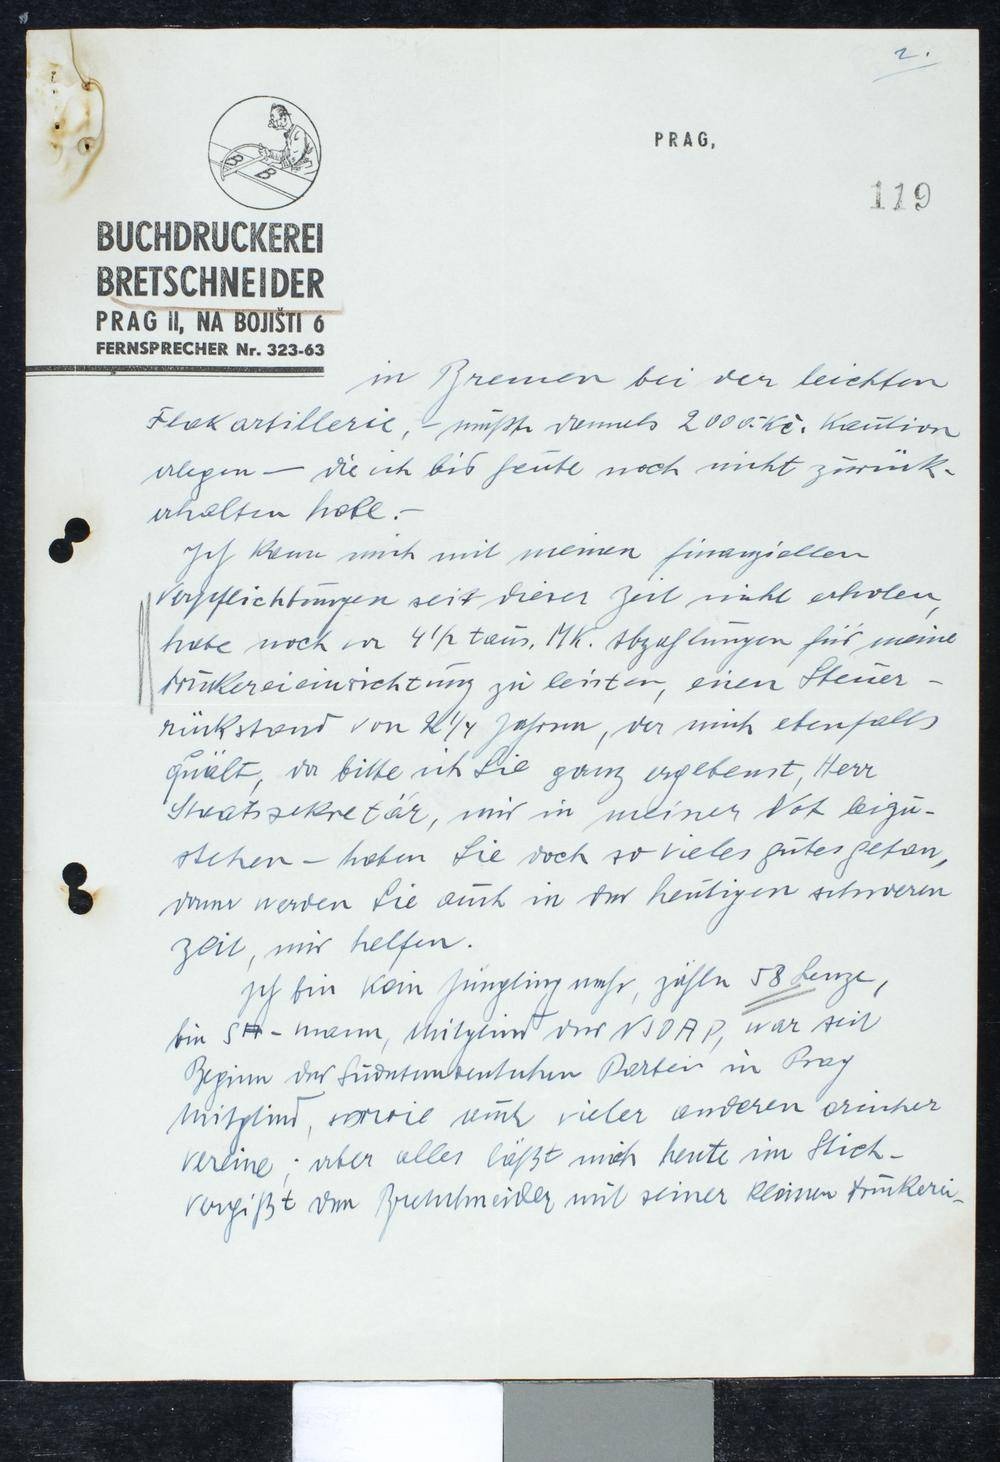 2.
PRAG,
119
BUCHDRUCKEREI
BRETSCHNEIDER
PRAG II, NA BOJIŠTI 6
FERNSPRECHER Nr. 323-63
in Bremen bei der leichten
Flakartillerie, – mußte damals 2000.- Kč. Kaution
erlegen – die ich bis heute noch nicht zurück-
erhalten habe. –
Ich kann mich mit meinen finanziellen
Verpflichtungen seit dieser Zeit nicht erholen,
habe noch 4 1/2 taus. MK. Abzahlungen für meine
Druckereieinrichtung zu leisten, einen Steuer-
rückstand von 2 1/4 Jahren, der mich ebenfalls
quält, da bitte ich Sie ganz ergebenst, Herr
Staatssekretär, mir in meiner Not beizu-
stehen – haben Sie doch so vieles gutes getan,
dann werden Sie auch in der heutigen schweren
Zeit, mir helfen.
Ich bin kein Jüngling mehr, zähle 58 Lenze,
bin SA-mann, Mitglied der NSDAP, war seit
Beginn der Sudetendeutschen Partei in Prag
Mitglied, sowie auch vieler anderen arischer
Vereine; aber alles läßt mich heute im Stich –
vergißt den Bretschneider mit seiner kleinen Druckerei –